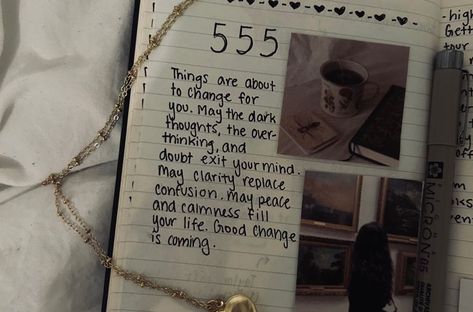 555
Things are about
to change for
you. May the dark
thoughts, the over-
thinking, and
doubt exit your mind.
May clarity replace
confusion. May peace
and calmness fill
your life. Good change
is coming.
-high
MICRON 05